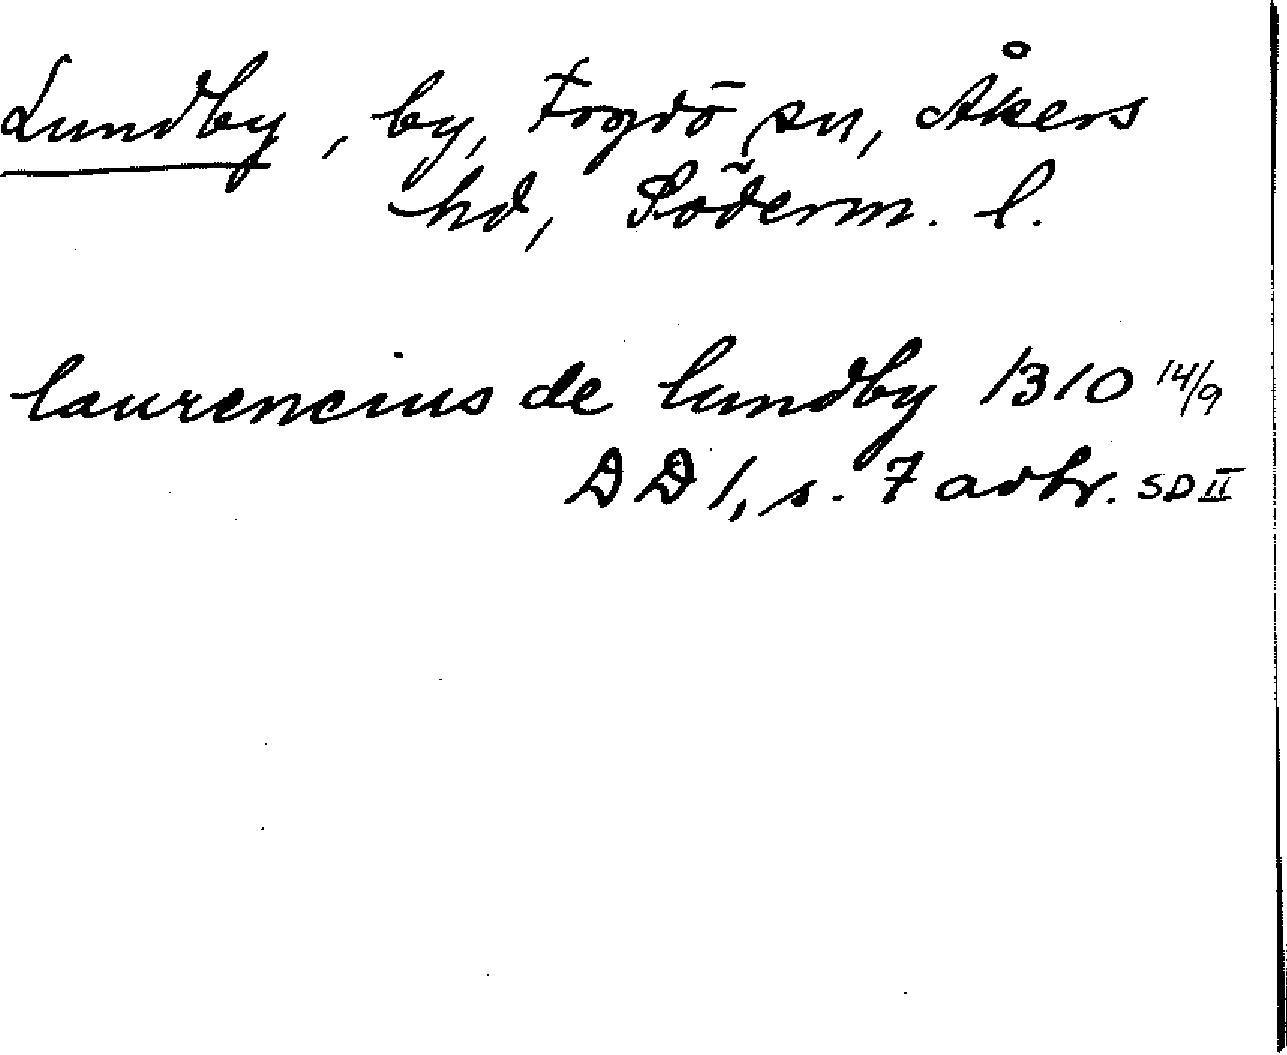 Lundby, by, Fogdö sn, Åkers
hd, Söderm. l.
laurencius de lundby 1310 14/9
DD 1, s. 7 avtr. SD II